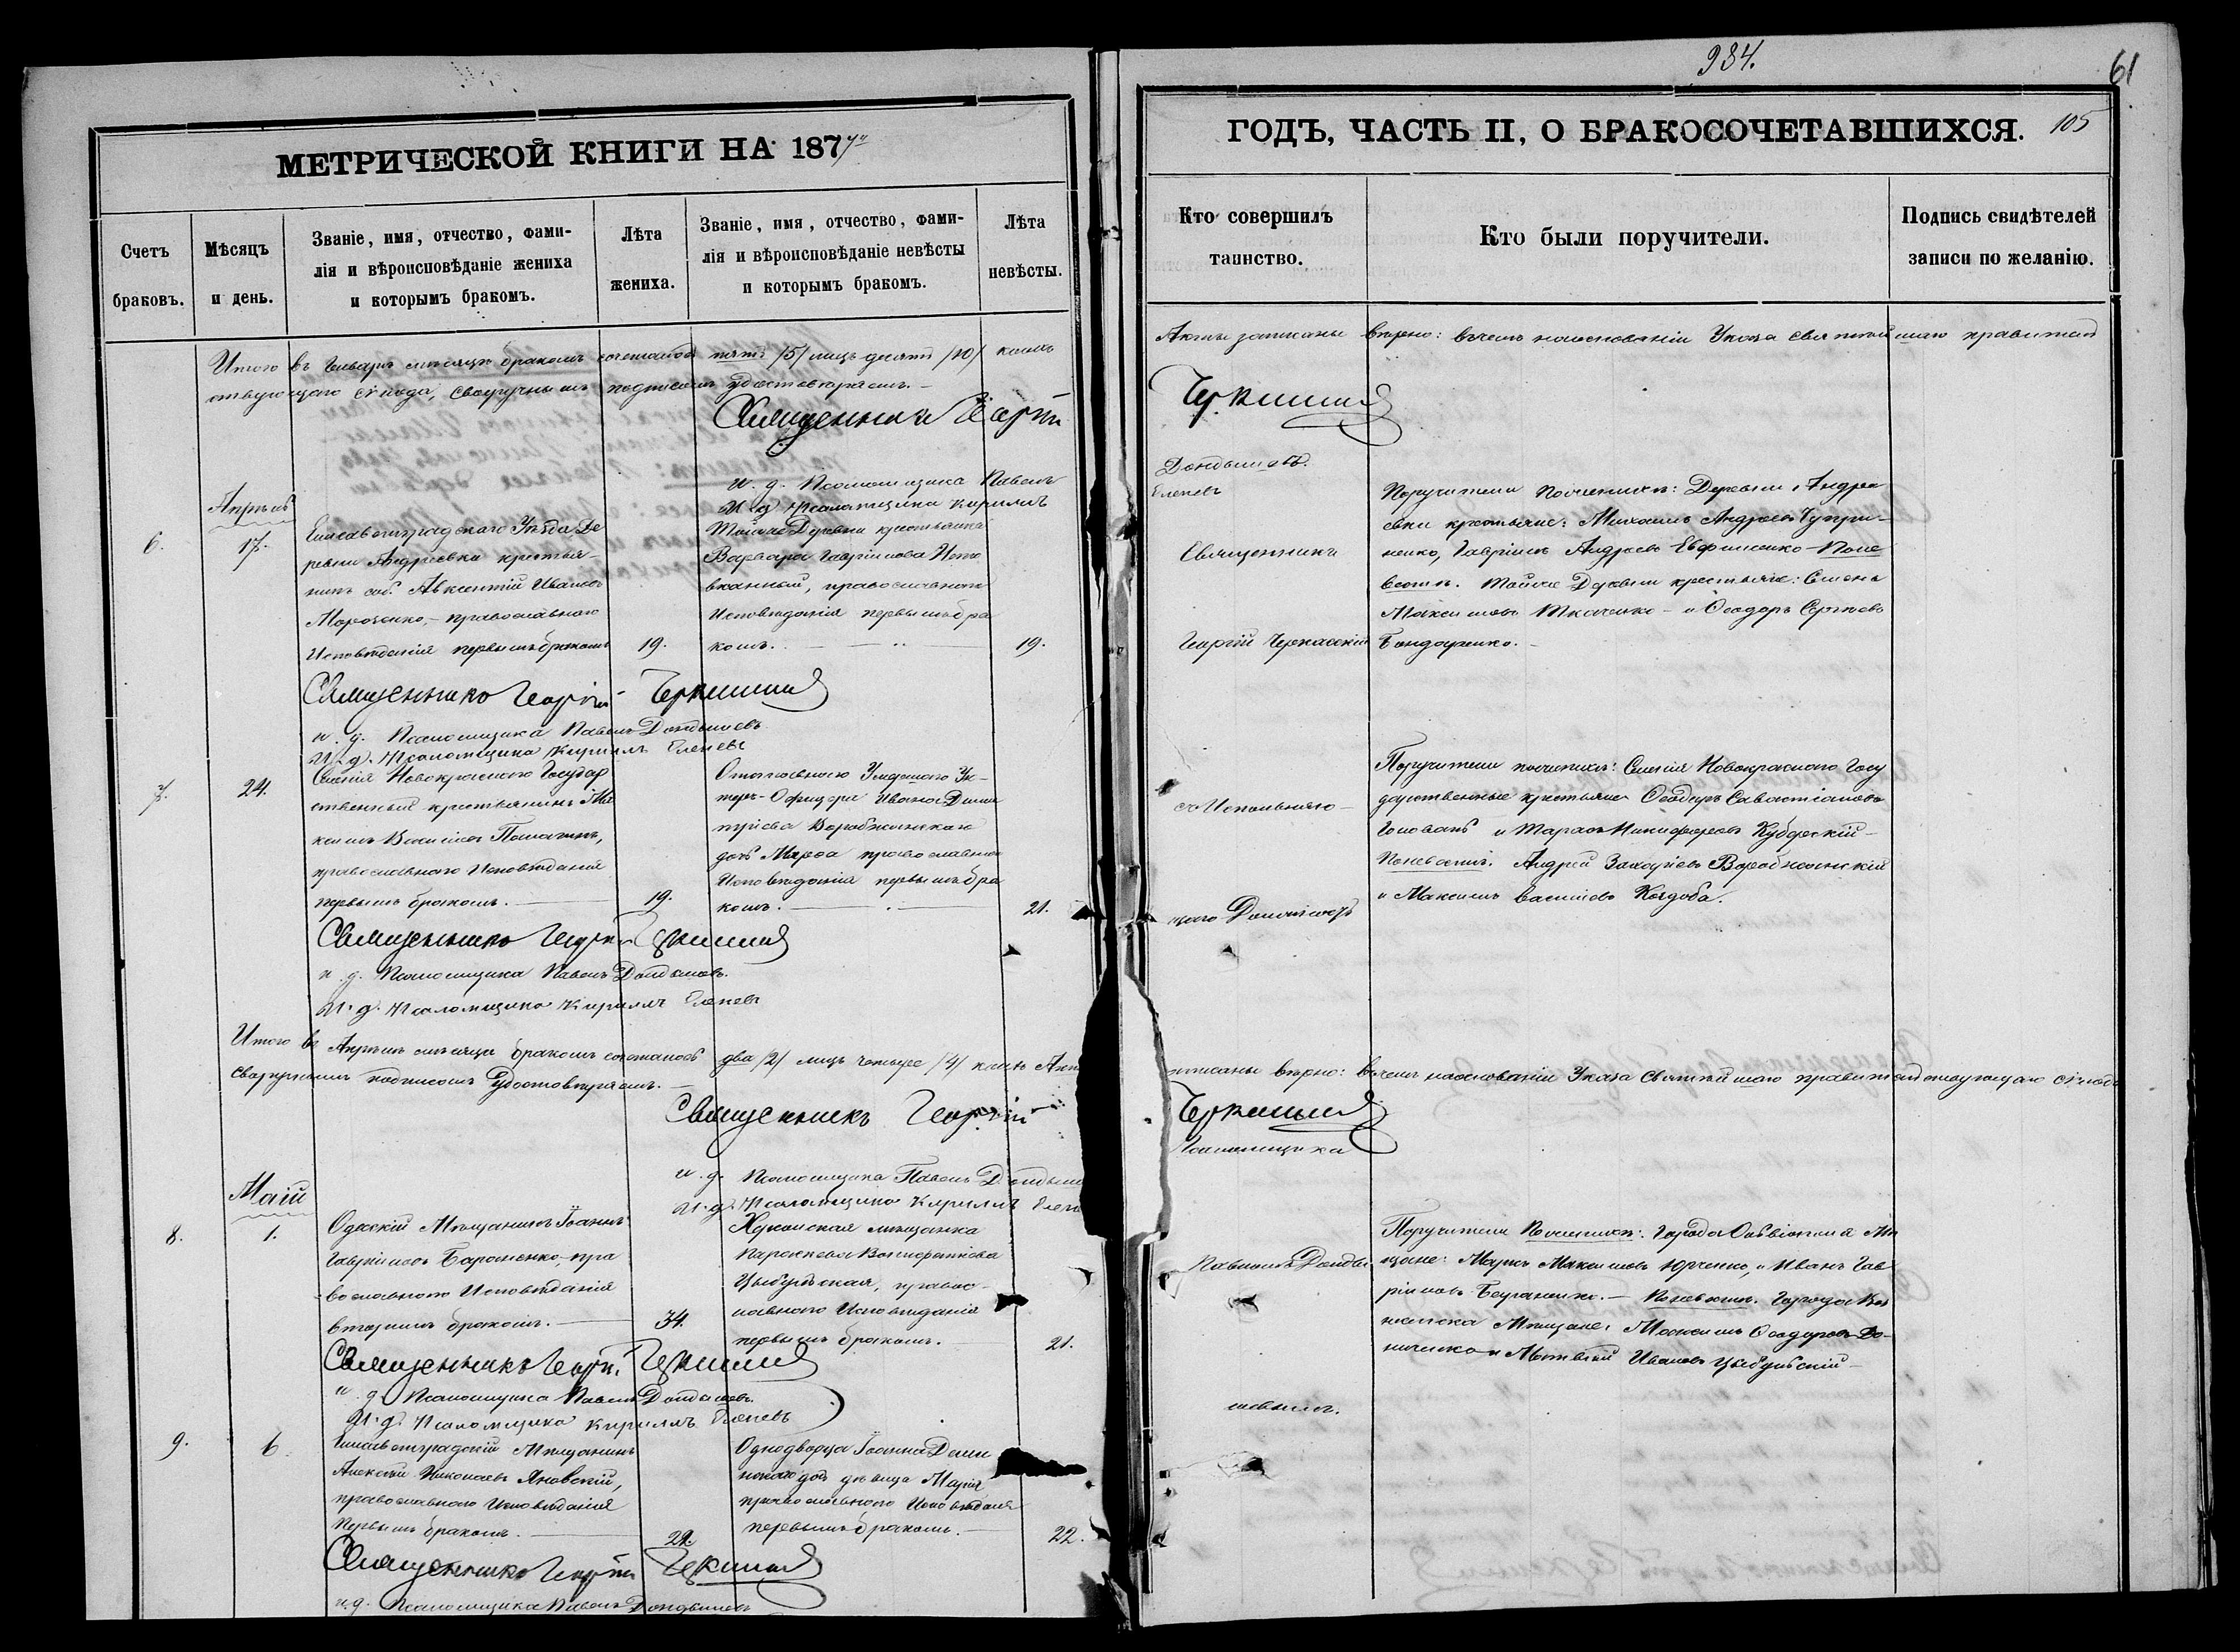 934.
61
МЕТРИЧЕСКОЙ КНИГИ НА 1877
ГОДЪ, ЧАСТЬ II, О БРАКОСОЧЕТАВШИХСЯ.
105
Счетъ
браковъ.
Мѣсяцъ
и день.
Званіе, имя, отчество, фами-
лія и вѣроисповѣданіе жениха
и которымъ бракомъ.
Лѣта
жениха.
Званіе, имя, отчество, фами-
лія и вѣроисповѣданіе невѣсты
и которымъ бракомъ.
Лѣта
невѣсты.
Кто совершилъ
таинство.
Кто были поручители.
Подпись свидѣтелей
записи по желанію.
Итого въ Январѣ мѣсяцѣ бракомъ сочеталось пять /5/ лицъ десять /10/ коихъ
Акты записаны вѣрно: въ чемъ на основаніи Указа Святѣйшаго правитель
ствующаго Сѵнода, своеручнымъ подписомъ удостовѣряемъ.
Священникъ Георгій
Черкасскій
и. д. Псаломщика Павелъ
Дондышевъ.
И. д. Псаломщика Кириллъ
Еленевъ
Апрѣль
6.
17.
Елисаветградскаго Уѣзда Де
ревни Андреевки крестья-
нинъ соб. Авксентій Ивановъ
Морозенко, православнаго
Исповѣданія первымъ бракомъ
19.
Тойже Деревни крестьянка
Варвара Гавріилова
православнаго
Исповѣданія первымъ бра
комъ.
19.
Священникъ
Георгій Черкасскій
Поручители По женихѣ: Деревни Андре
евки крестьяне: Михаилъ Андреевъ Чупри-
ненко, Гавріилъ Андреевъ Евфименко По не
вестѣ. Тойже Деревни крестьяне: Семенъ
Максимовъ Ткаченко и Ѳеодоръ Сергѣевъ
Бондаренко.
Священникъ Георгій Черкасскій
и. д. Псаломщика Павелъ Дондышевъ
И. д. Псаломщика Кириллъ Еленевъ
7.
24.
Селенія Новокраснаго Государ
ственный крестьянинъ Ма
ксимъ Василіевъ
православнаго Исповѣданія
первымъ бракомъ.
19.
Отставнаго Ун-
теръ-Офицера Ивана Дими
тріева Воробжанскаго
дочь Марѳа православнаго
Исповѣданія первымъ бра
комъ.
21.
съ Исполняю-
щаго Должность
Поручители по женихѣ: Селенія Новокраснаго Госу
дарственные крестьяне Ѳеодоръ Савастіановъ
Головань и Тарасъ Никифоровъ
По невѣстѣ. Андрей Захаріевъ Воробжанскій
и Максимъ Василіевъ
Священникъ Георгій Черкасскій
и. д. Псаломщика Павелъ Дондышевъ.
И. д. Псаломщика Кириллъ Еленевъ
Итого въ Апрѣлѣ мѣсяцѣ бракомъ сочеталось два /2/ лицъ четыре /4/ коихъ Акты
записаны вѣрно: въ чемъ на основаніи Указа Святѣйшаго правительствующаго Сѵнода
своеручнымъ подписомъ удостовѣряемъ.
Священникъ Георгій
Черкасскій
и. д. Псаломщика Павелъ Дондыш
Псаломщика
И. д. Псаломщика Кириллъ Елен
Маій
8.
1.
Одесскій Мѣщанинъ Іоаннъ
Гавріиловъ пра
вославнаго Исповѣданія
вторымъ бракомъ.
34.
Херсонская мѣщанка
Параскева
Цыбульская, правос-
лавнаго Исповѣданія
первымъ бракомъ.
21.
Павломъ Донды
шевымъ.
Поручители По женихѣ: Города Ольвіополя Мѣ
щане: Маркъ Максимовъ Юрченко, и Иванъ Гав
ріиловъ По невѣстѣ. Города Воз
несенска Мѣщане: Максимъ Ѳеодоровъ
и Матвѣй Ивановъ Цыбульскій
Священникъ Георгій Черкасскій
и. д. Псаломщика Павелъ Дондышевъ.
И. д. Псаломщика Кириллъ Еленевъ
9.
6.
Елисаветградскій Мѣщанинъ
Алексѣй Николаевъ Яновскій,
православнаго Исповѣданія
Первымъ бракомъ.
22
Однодворца Іоанна
дочь дѣвица Марія
православнаго Исповѣданія
первымъ бракомъ.
22.
Священникъ Георгій Черкасскій
и. д. Псаломщика Павелъ Дондышевъ